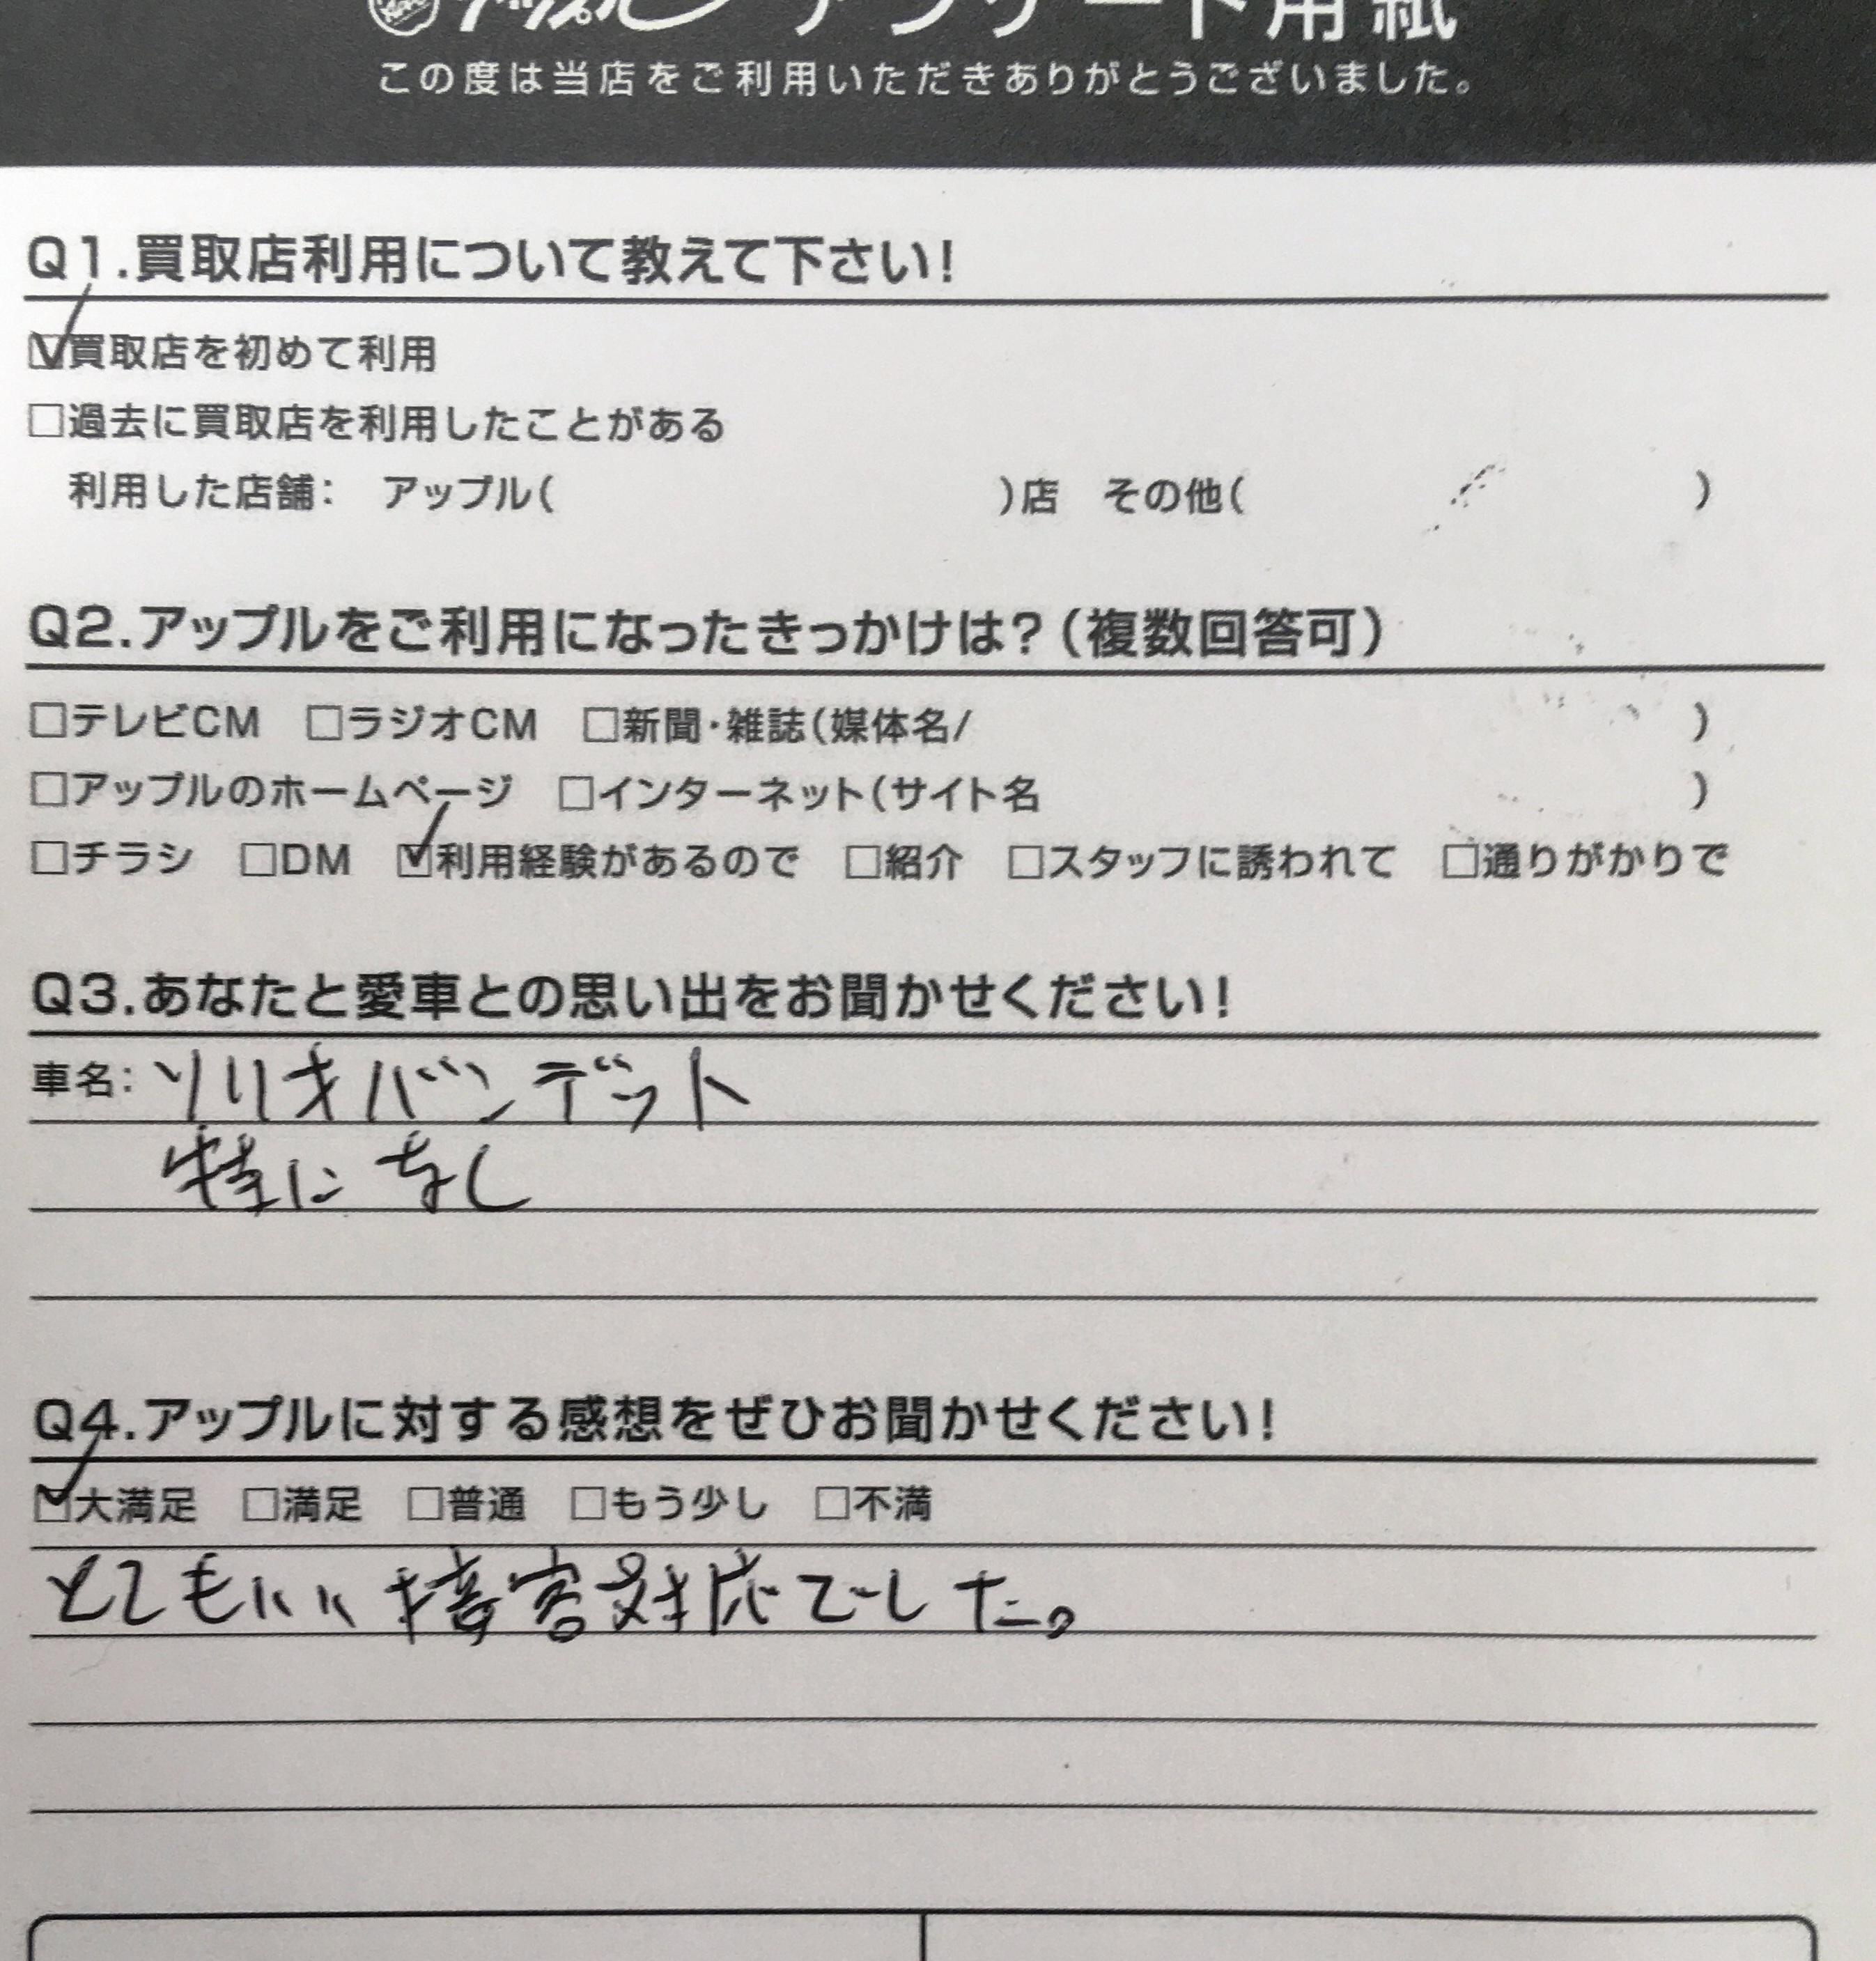 アップル アンケート用紙
この度は当店をご利用いただきありがとうございました。
Q1.買取店利用について教えて下さい!
☑買取店を初めて利用
□過去に買取店を利用したことがある
利用した店舗: アップル( )店 その他( )
Q2.アップルをご利用になったきっかけは?(複数回答可)
□テレビCM □ラジオCM □新聞・雑誌(媒体名/ )
□アップルのホームページ □インターネット(サイト名 )
□チラシ □DM ☑利用経験があるので □紹介 □スタッフに誘われて □通りがかりで
Q3.あなたと愛車との思い出をお聞かせください!
車名: ソリオバンデット
特になし
Q4.アップルに対する感想をぜひお聞かせください!
☑大満足 □満足 □普通 □もう少し □不満
とてもいい接客対応でした。